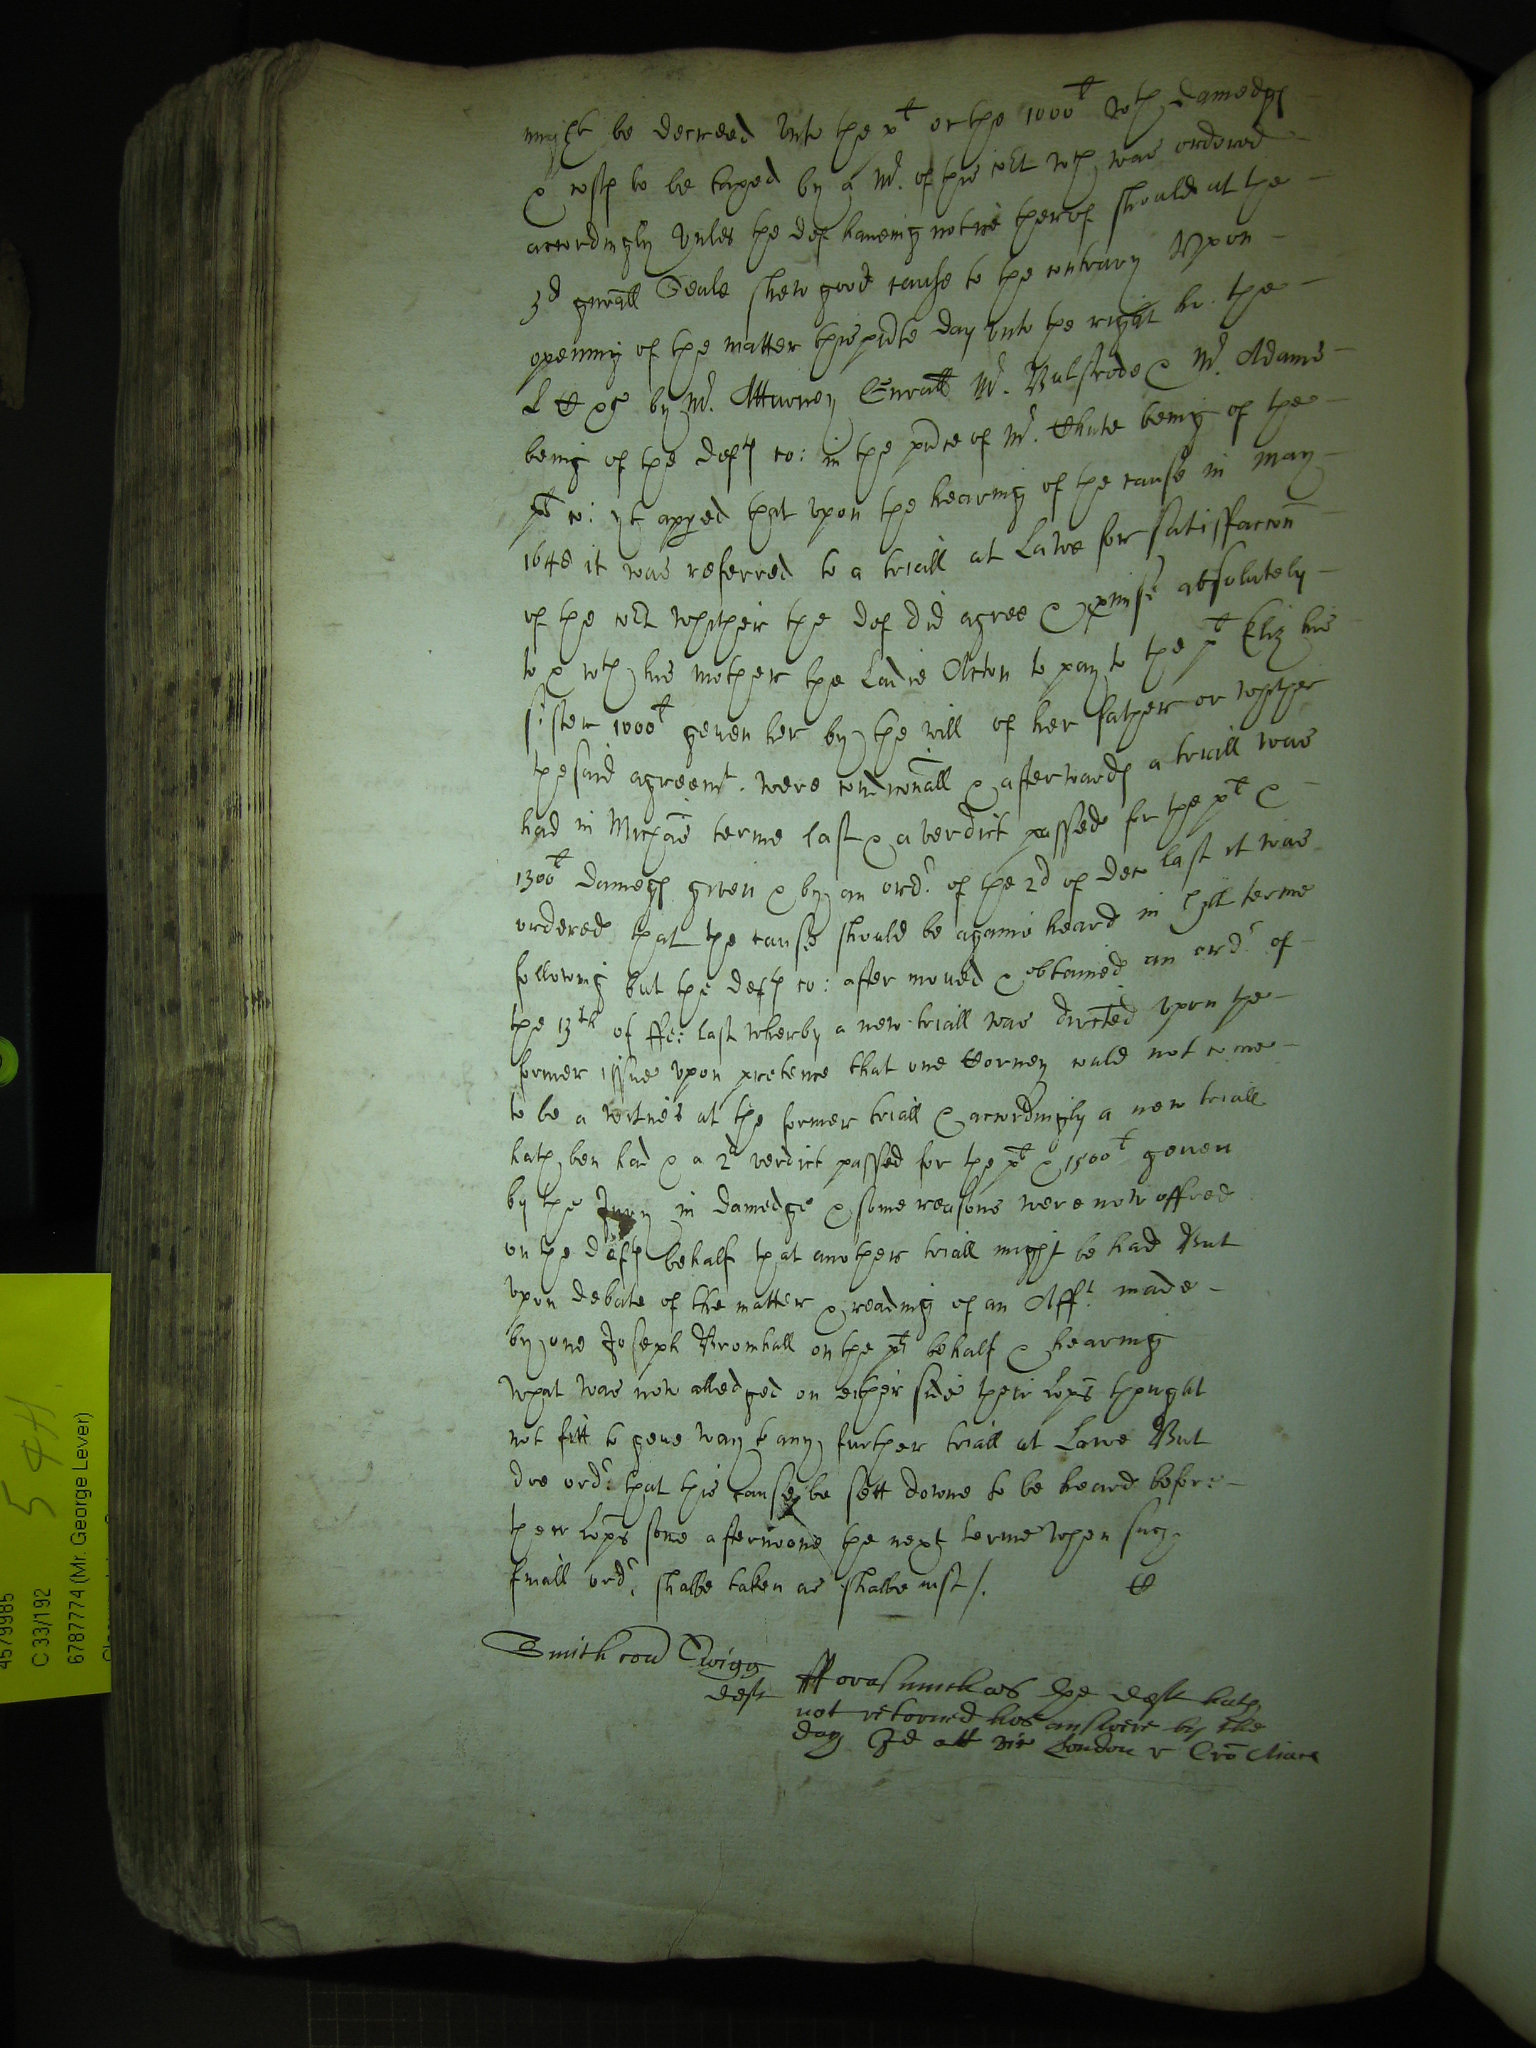 might be decreed unto the plt or the 1000l wth damedges
& costs to be taxed by a Mr. of this cort wch was ordered
accordingly unles the def haueing notice therof should at the
3d gnrall Seale shew good cause to the contrary Upon
opening of the matter this prste day unto the right ho. the
L C by Mr. Atturney Gnrall Mr. Bulstrode & Mr. Adams
being of the defts co: in the prnce of Mr. Chute being of the
plt co: yt appred that upon the hearing of the cause in May
1648 it was referred to a triall at Lawe for satisffaccon
of the cort whether the def did agree & pmise absolutely
to & wth his mother the Ladie Acton to pay to the plt Eliz his
sister 1000l geuen her by the will of her father or whether
the said agreemt. were condiconall & afterwards a triall was
had in Michas terme last & a verdict passed for the plt &
1300l dameges given & by an ordr. of the 2d of Dec last it was
ordered that the cause should be againe heard in Hill terme
following but the defts co: after moued & obtained an ordr of
the 13th of ffe: last wherby a new triall was dirted upon the
former issue upon pretence that one Corney could not come
to be a witnes at the former triall & accordingly a new triall
hath ben had & a 2d verdict passed for the plt & 1500l geuen
by the Jury in damedge & some reasons were now offred
on the defts behalf that another triall might be had But
upon debate of the matter & reading of an Afft. made
by one Joseph Bromhall on the plt behalf & hearing
what was now alledged on either side their Lops thought
not fitt to geue way to any further triall at Lawe But
doe ordr. that this cause be sett downe to be heard before
their Lops some afternoone the next terme when such
finall ordr. shalbe taken as shalbe iust /.
Smith con Twigg
deft
fforasmuch as the deft hath
not retorned his answere by the
day att London
4579985
C 33/192
6787774 (Mr. George Lever)